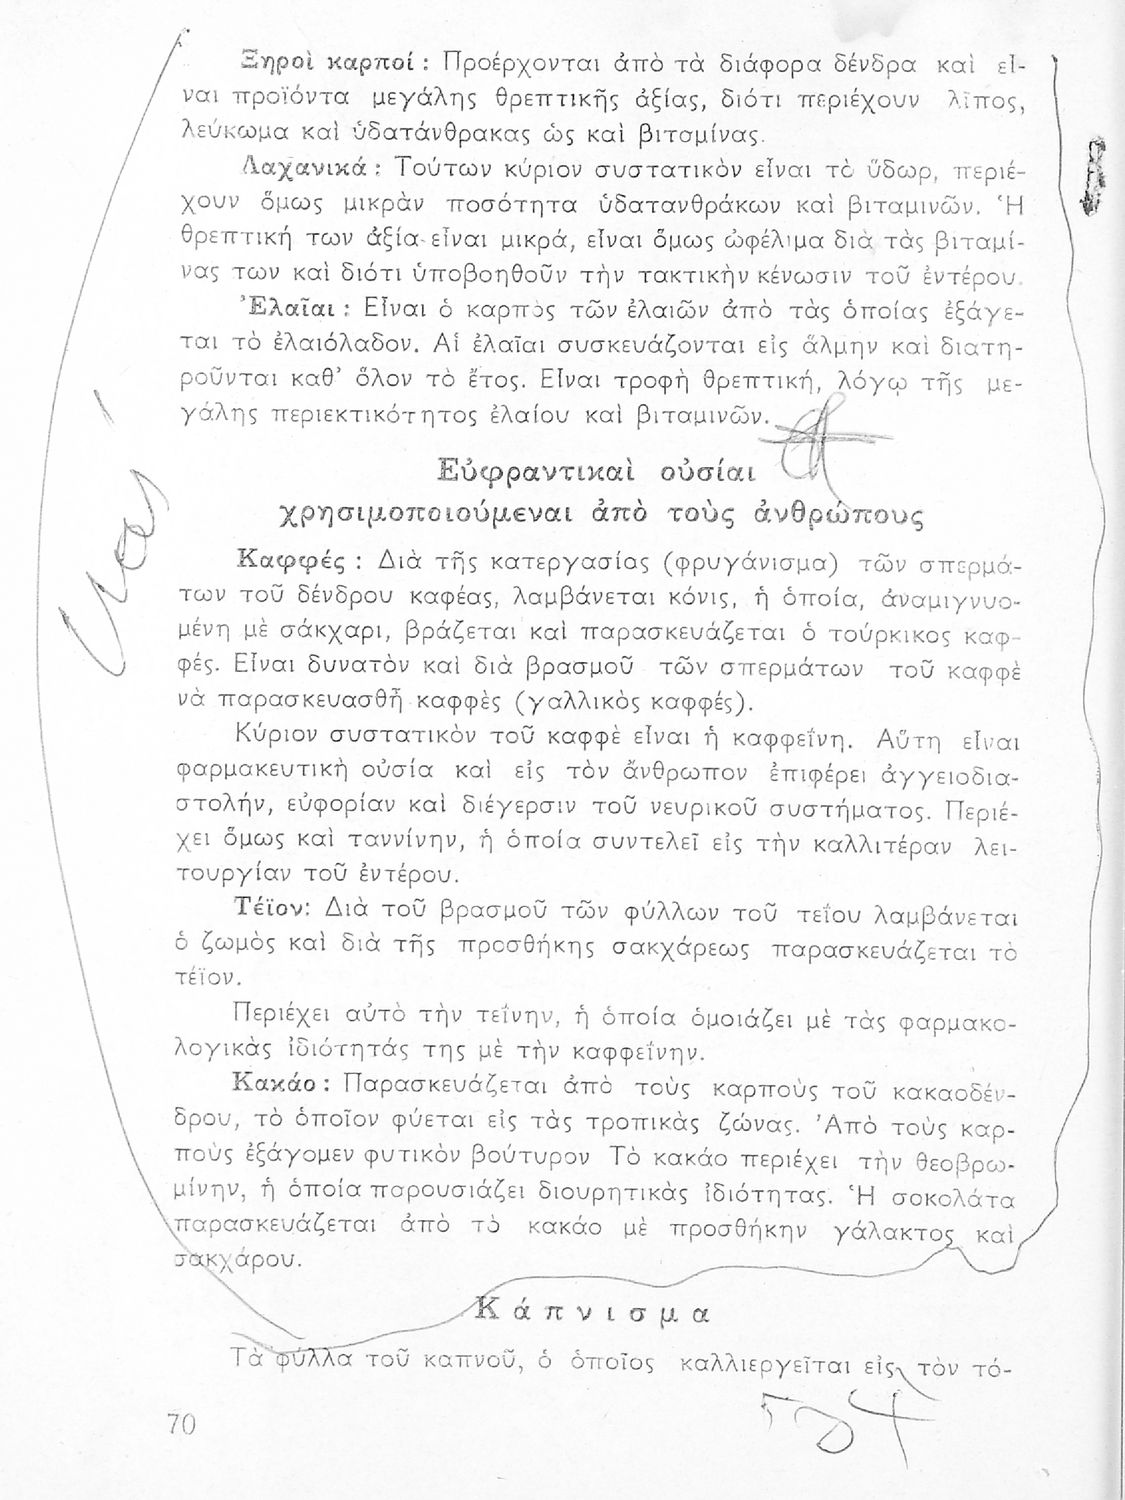 Ξηροὶ καρποί : Προέρχονται ἀπὸ τὰ διάφορα δένδρα καὶ εἶ-
ναι προϊόντα μεγάλης θρεπτικῆς ἀξίας, διότι περιέχουν λῖπος,
λεύκωμα καὶ ὑδατάνθρακας ὡς καὶ βιταμίνας.
Λαχανικά : Τούτων κύριον συστατικὸν εἶναι τὸ ὕδωρ, περιέ-
χουν ὅμως μικρὰν ποσότητα ὑδατανθράκων καὶ βιταμινῶν. Ἡ
θρεπτική των ἀξία εἶναι μικρά, εἶναι ὅμως ὠφέλιμα διὰ τὰς βιταμί-
νας των καὶ διότι ὑποβοηθοῦν τὴν τακτικὴν κένωσιν τοῦ ἐντέρου.
Ἐλαῖαι : Εἶναι ὁ καρπὸς τῶν ἐλαιῶν ἀπὸ τὰς ὁποίας ἐξάγε-
ται τὸ ἐλαιόλαδον. Αἱ ἐλαῖαι συσκευάζονται εἰς ἅλμην καὶ διατη-
ροῦνται καθ’ ὅλον τὸ ἔτος. Εἶναι τροφὴ θρεπτική, λόγῳ τῆς με-
γάλης περιεκτικότητος ἐλαίου καὶ βιταμινῶν.
Εὐφραντικαὶ οὐσίαι
χρησιμοποιούμεναι ἀπὸ τοὺς ἀνθρώπους
Καφφές : Διὰ τῆς κατεργασίας (φρυγάνισμα) τῶν σπερμά-
των τοῦ δένδρου καφέας, λαμβάνεται κόνις, ἡ ὁποία, ἀναμιγνυο-
μένη μὲ σάκχαρι, βράζεται καὶ παρασκευάζεται ὁ τούρκικος καφ-
φές. Εἶναι δυνατὸν καὶ διὰ βρασμοῦ τῶν σπερμάτων τοῦ καφφὲ
νὰ παρασκευασθῇ καφφὲς (γαλλικὸς καφφές).
Κύριον συστατικὸν τοῦ καφφὲ εἶναι ἡ καφφεΐνη. Αὕτη εἶναι
φαρμακευτικὴ οὐσία καὶ εἰς τὸν ἄνθρωπον ἐπιφέρει ἀγγειοδια-
στολήν, εὐφορίαν καὶ διέγερσιν τοῦ νευρικοῦ συστήματος. Περιέ-
χει ὅμως καὶ ταννίνην, ἡ ὁποία συντελεῖ εἰς τὴν καλλιτέραν λει-
τουργίαν τοῦ ἐντέρου.
Τέϊον: Διὰ τοῦ βρασμοῦ τῶν φύλλων τοῦ τεΐου λαμβάνεται
ὁ ζωμὸς καὶ διὰ τῆς προσθήκης σακχάρεως παρασκευάζεται τὸ
τέϊον.
Περιέχει αὐτὸ τὴν τεΐνην, ἡ ὁποία ὁμοιάζει μὲ τὰς φαρμακο-
λογικὰς ἰδιότητάς της μὲ τὴν καφφεΐνην.
Κακάο : Παρασκευάζεται ἀπὸ τοὺς καρποὺς τοῦ κακαοδέν-
δρου, τὸ ὁποῖον φύεται εἰς τὰς τροπικὰς ζώνας. Ἀπὸ τοὺς καρ-
ποὺς ἐξάγομεν φυτικὸν βούτυρον Τὸ κακάο περιέχει τὴν θεοβρω-
μίνην, ἡ ὁποία παρουσιάζει διουρητικὰς ἰδιότητας. Ἡ σοκολάτα
παρασκευάζεται ἀπὸ τὸ κακάο μὲ προσθήκην γάλακτος καὶ
σακχάρου.
Κάπνισμα
Τὰ φύλλα τοῦ καπνοῦ, ὁ ὁποῖος καλλιεργεῖται εἰς τὸν τό-
70